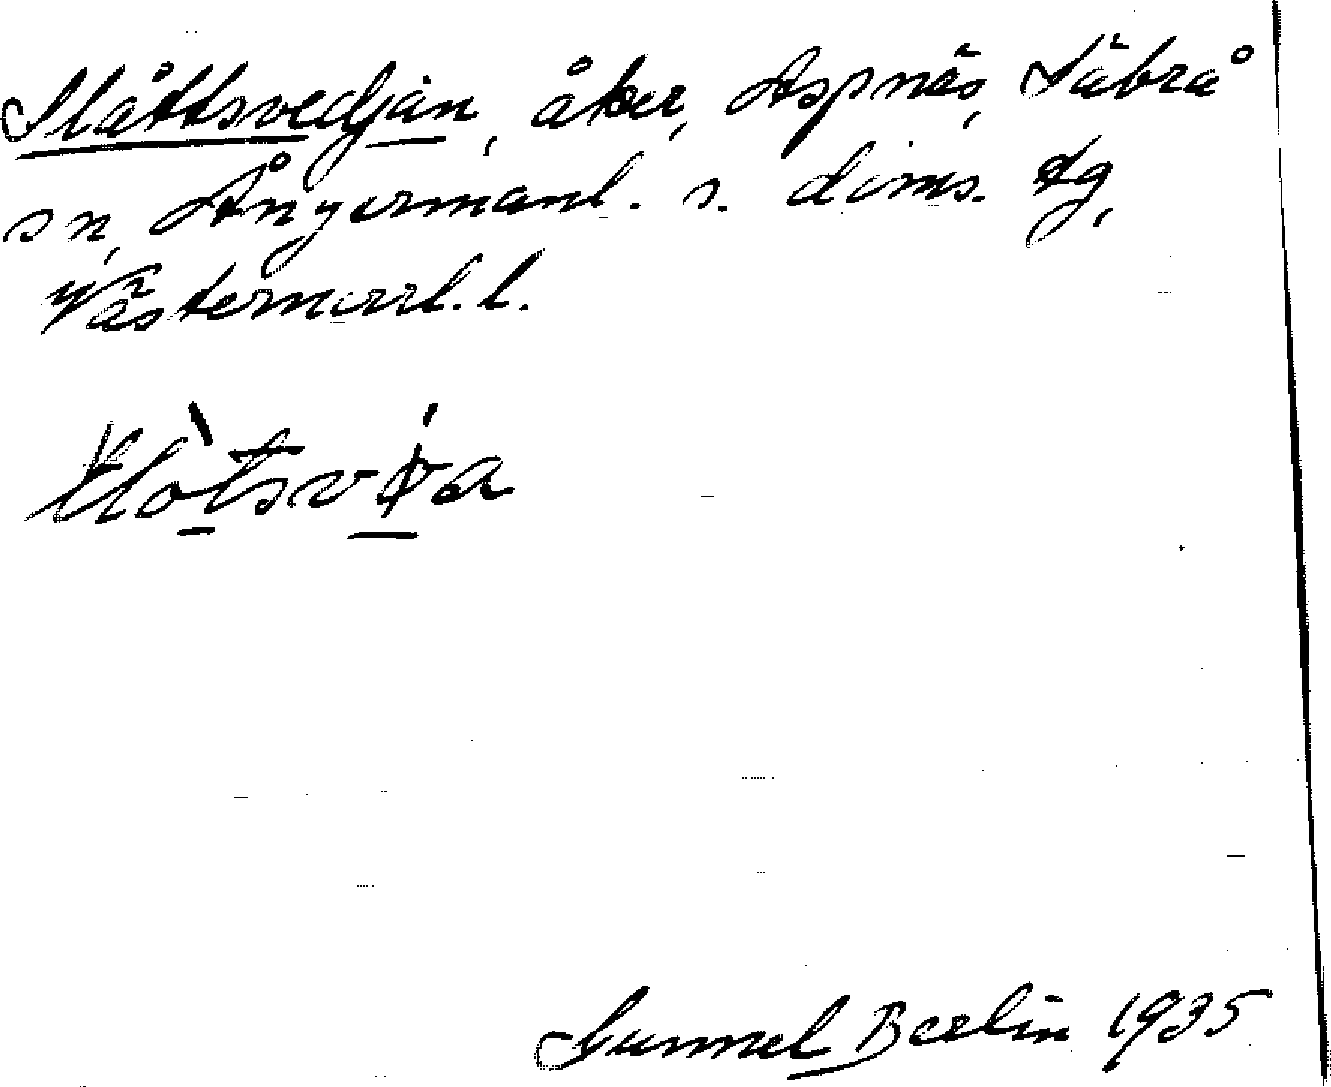 Slåttsvedjan, åker, Aspnäs, Säbrå
sn, Ångermanl. s. doms. tg,
Västernorrl. l.
Slòtsvǿa
Gunnel Berlin 1935